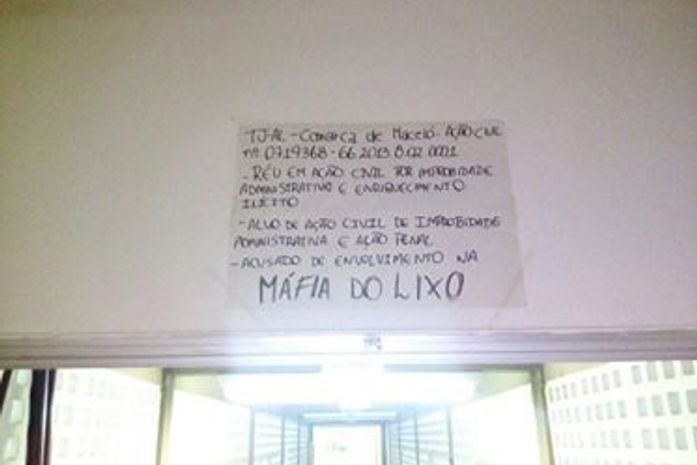 TJ-AL - Comarca de Maceió - AÇÃO CIVIL
nº 0719368-66.2013.8.02.0001
- RÉU EM AÇÃO CIVIL POR IMPROBIDADE
ADMINISTRATIVA E ENRIQUECIMENTO
ILÍCITO
- ALVO DE AÇÃO CIVIL DE IMPROBIDADE
ADMINISTRATIVA E AÇÃO PENAL
- ACUSADO DE ENVOLVIMENTO NA
MÁFIA DO LIXO